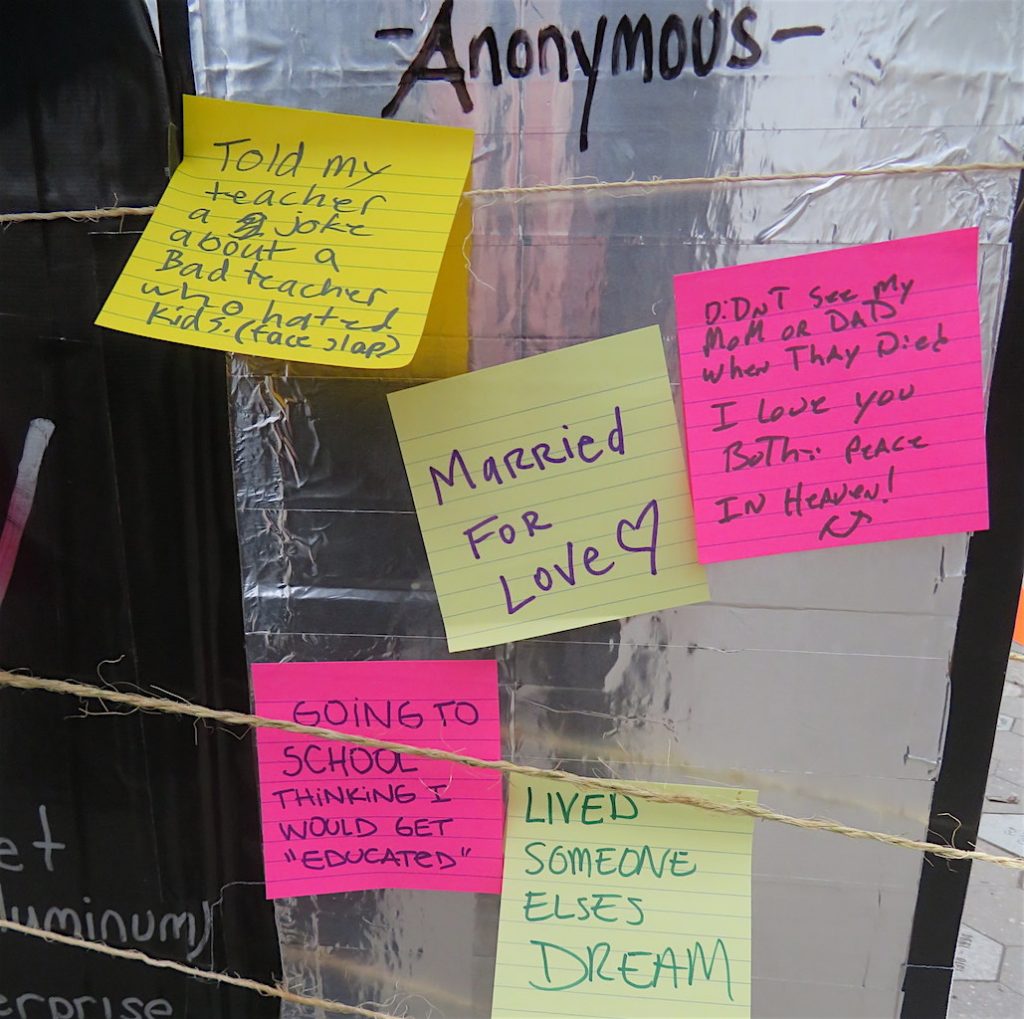 -Anonymous-
Told my
teacher
a joke
about a
Bad teacher
who hated
kids. (face slap)
DiDNT See My
MoM OR DAD
when Thay Died
I love you
BoTh.. PeACe
IN HeAveN!
MARRied
FOR
Love
GOING TO
SCHOOL
THINKING I
WOULD GET
"EDUCATED"
LIVED
SOMEONE
ELSES
DREAM
et
luminum)
erprise